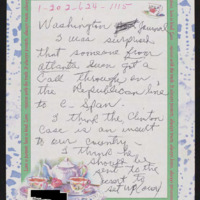 1-202-624-1115
Washington Journal
I was surprised
that someone from
atlanta
call through on
the Republican line
to C span.
I think the Clinton
Case is an insult
to our Country.
I think he
should be
sent to the
to
set up our